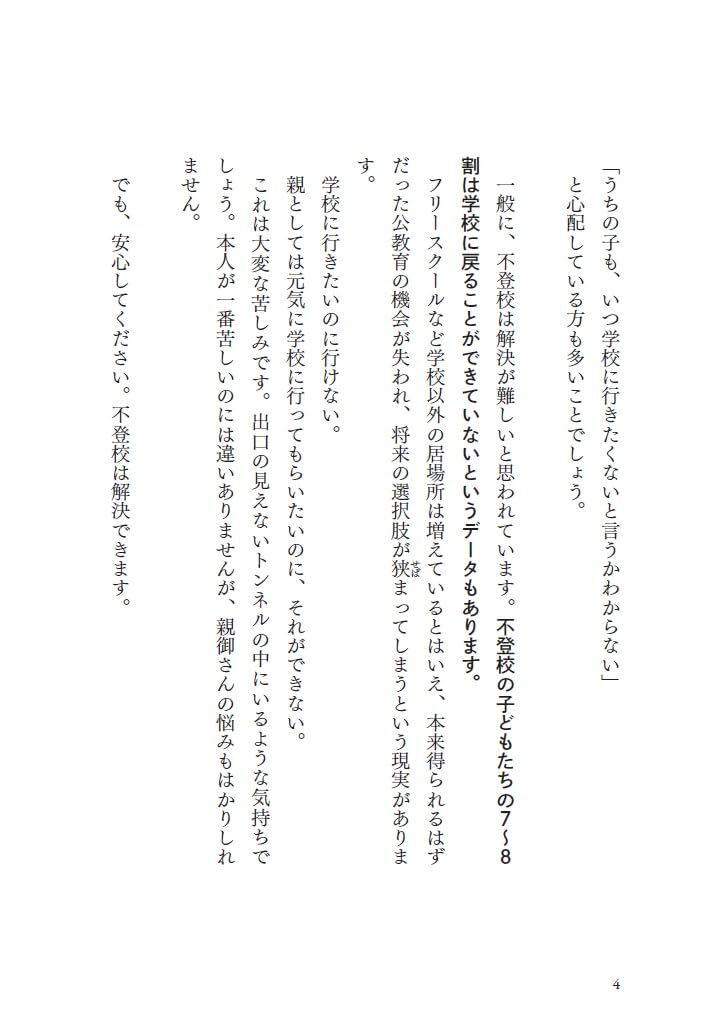 「うちの子も、いつ学校に行きたくないと言うかわからない」
と心配している方も多いことでしょう。
一般に、不登校は解決が難しいと思われています。不登校の子どもたちの7〜8
割は学校に戻ることができていないというデータもあります。
フリースクールなど学校以外の居場所は増えているとはいえ、本来得られるはず
だった公教育の機会が失われ、将来の選択肢が狭せばまってしまうという現実がありま
す。
学校に行きたいのに行けない。
親としては元気に学校に行ってもらいたいのに、それができない。
これは大変な苦しみです。出口の見えないトンネルの中にいるような気持ちで
しょう。本人が一番苦しいのには違いありませんが、親御さんの悩みもはかりしれ
ません。
でも、安心してください。不登校は解決できます。
4